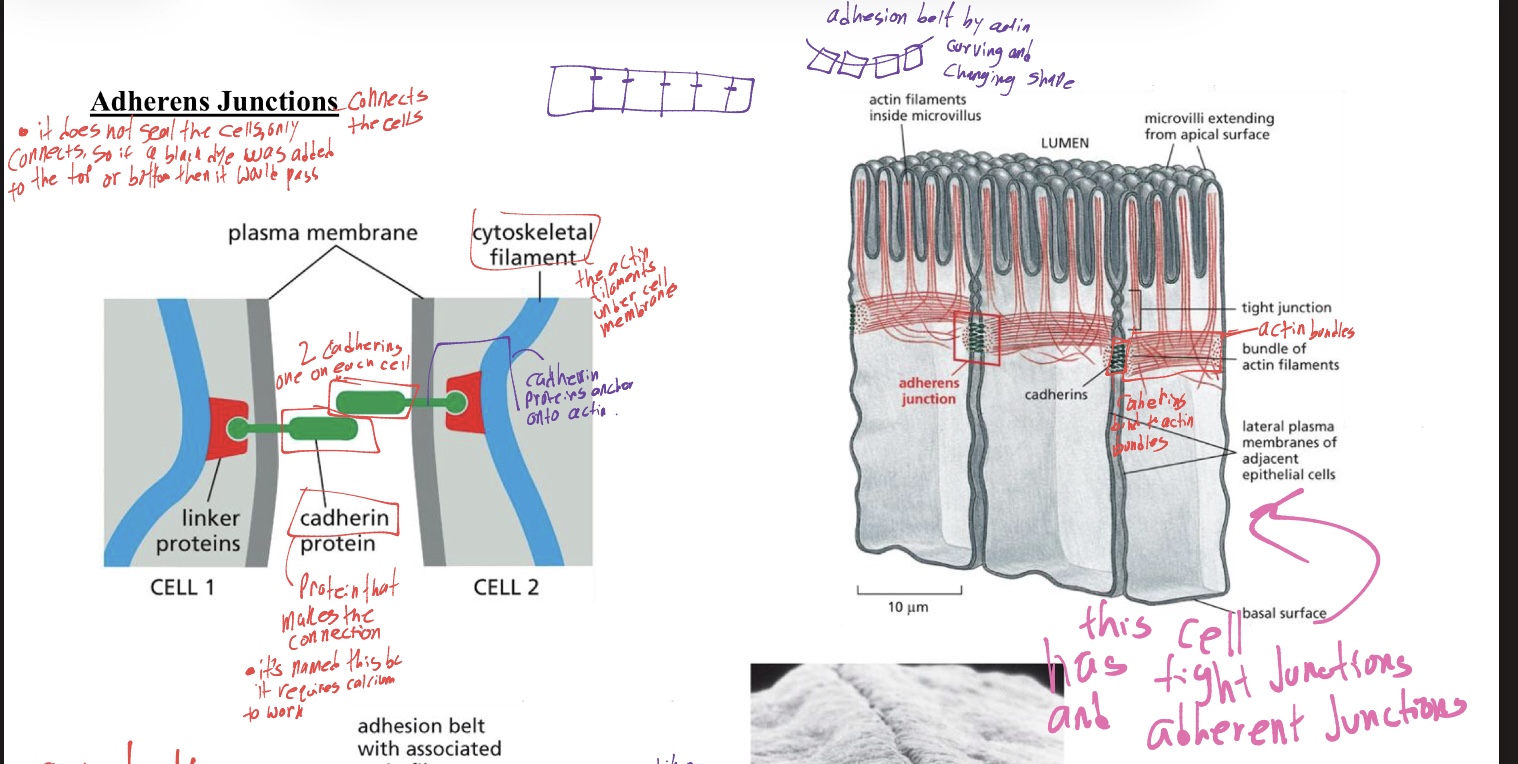 adhesion belt by actin
curving and
changing shape
Adherens Junctions
connects
the cells
• it does not seal the cells, only
connects, so if a black dye was added
to the top or bottom then it would pass
plasma membrane
cytoskeletal
filament
the actin
filaments
under cell
membrane
2 cadherins
one on each cell
cadherin
proteins anchor
onto actin.
linker
proteins
cadherin
protein
CELL 1
CELL 2
Protein that
makes the
connection
• it's named this bc
it requires calcium
to work
actin filaments
inside microvillus
LUMEN
microvilli extending
from apical surface
tight junction
actin bundles
bundle of
actin filaments
adherens
junction
cadherins
Caherins
actin
bundles
lateral plasma
membranes of
adjacent
epithelial cells
10 μm
basal surface
this cell
has tight Junctions
and adherent Junctions
adhesion belt
with associated